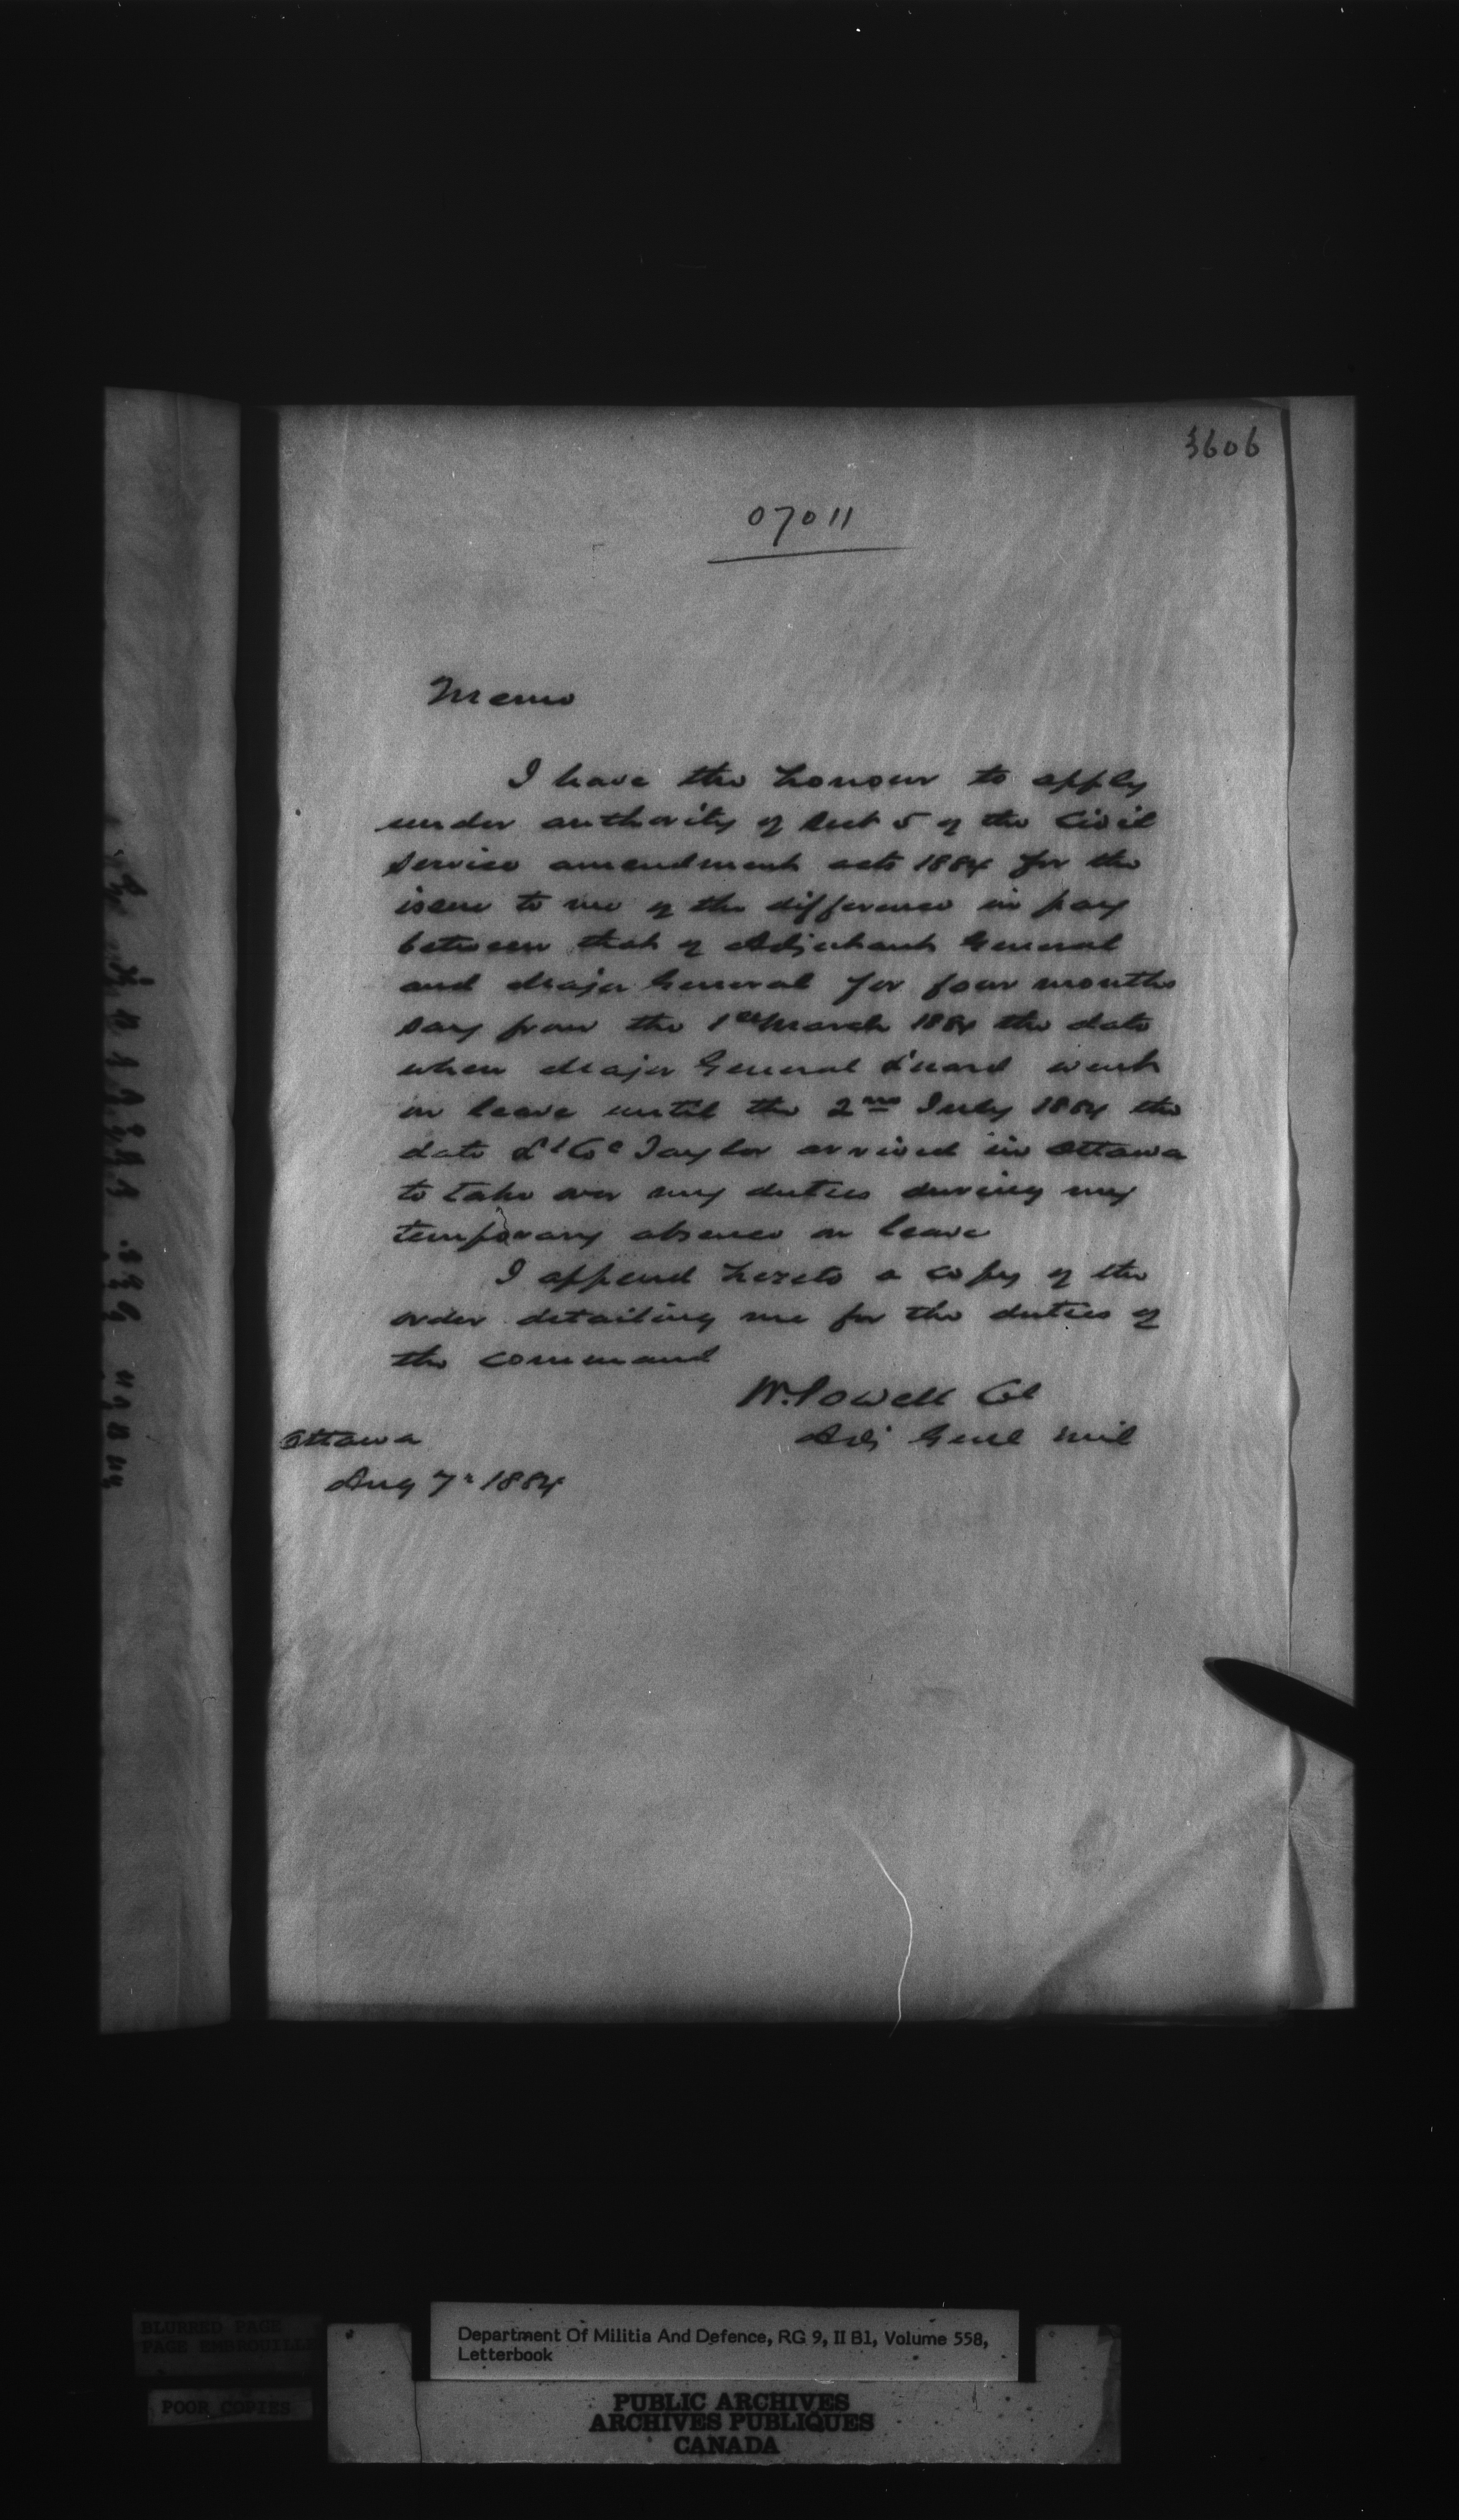 3606
07011
Memo
I have the honour to apply
under authority of Sect 5 of the Civil
Service amendment acts 1884 for the
issue to me of the difference in pay
between that of Adjutant General
and Major General for four months
say from the 1st March 1884 the date
when Major General Luard went
on leave until the 2nd July 1884 the
date Lt Col Taylor arrived in Ottawa
to take over my duties during my
temporary absence on leave
I append hereto a copy of the
order detailing me for the duties of
the command
W. Powell Col
Adj Genl Mil
Ottawa
Aug 7th 1884
BLURRED PAGE
PAGE EMBROUILLÉE
POOR COPIES
Department Of Militia And Defence, RG 9, II B1, Volume 558,
Letterbook
PUBLIC ARCHIVES
ARCHIVES PUBLIQUES
CANADA